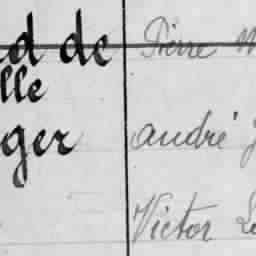 d de
lle
ger
Pierre
andré
Victor